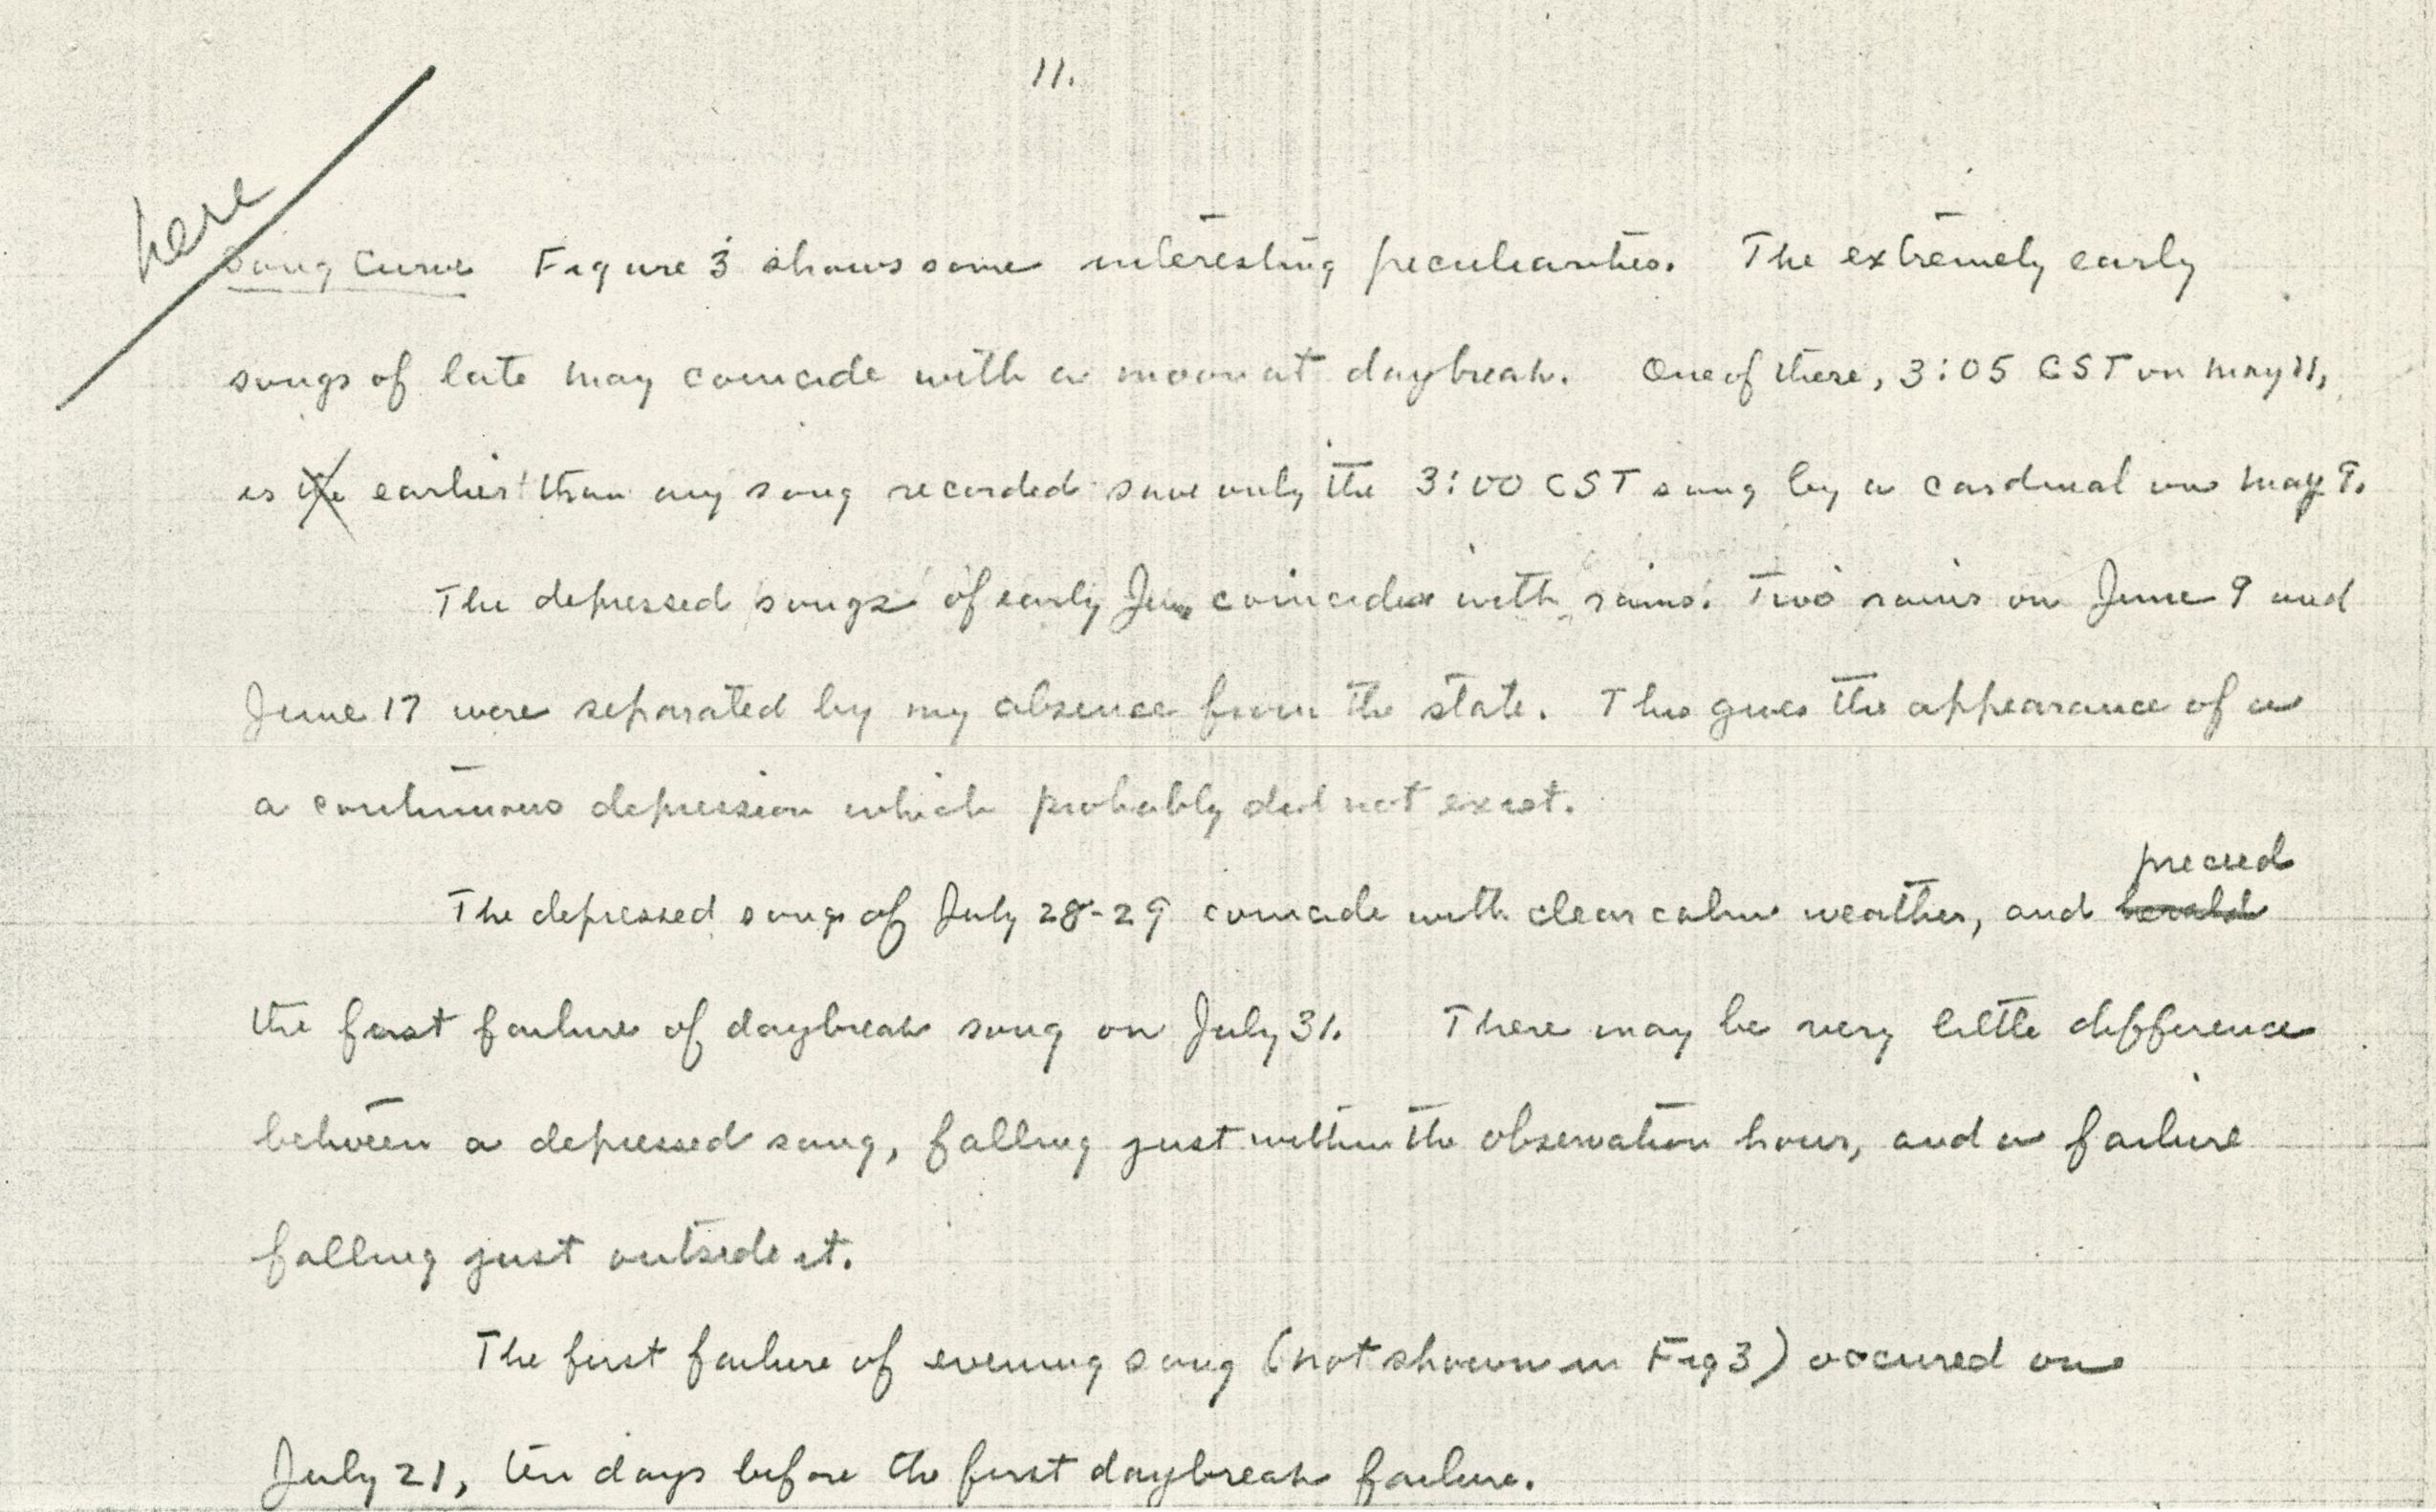 11.
here
Song Curve Figure 3 shows some interesting peculiarities. The extremely early
songs of late May coincide with a moon at daybreak. One of these, 3:05 CST on May 21,
is the earlier than any song recorded save only the 3:00 CST song by a cardinal on May 9.
The depressed songs of early June coincide with rains. Two rains on June 9 and
June 17 were separated by my absence from the state. This gives the appearance of a
a continuous depression which probably did not exist.
preceed
The depressed songs of July 28-29 coincide with clear calm weather, and herald
the first failure of daybreak song on July 31. There may be very little difference
between a depressed song, falling just within the observation hour, and a failure
falling just outside it.
The first failure of evening song (not shown in Fig 3) occured on
July 21, ten days before the first daybreak failure.